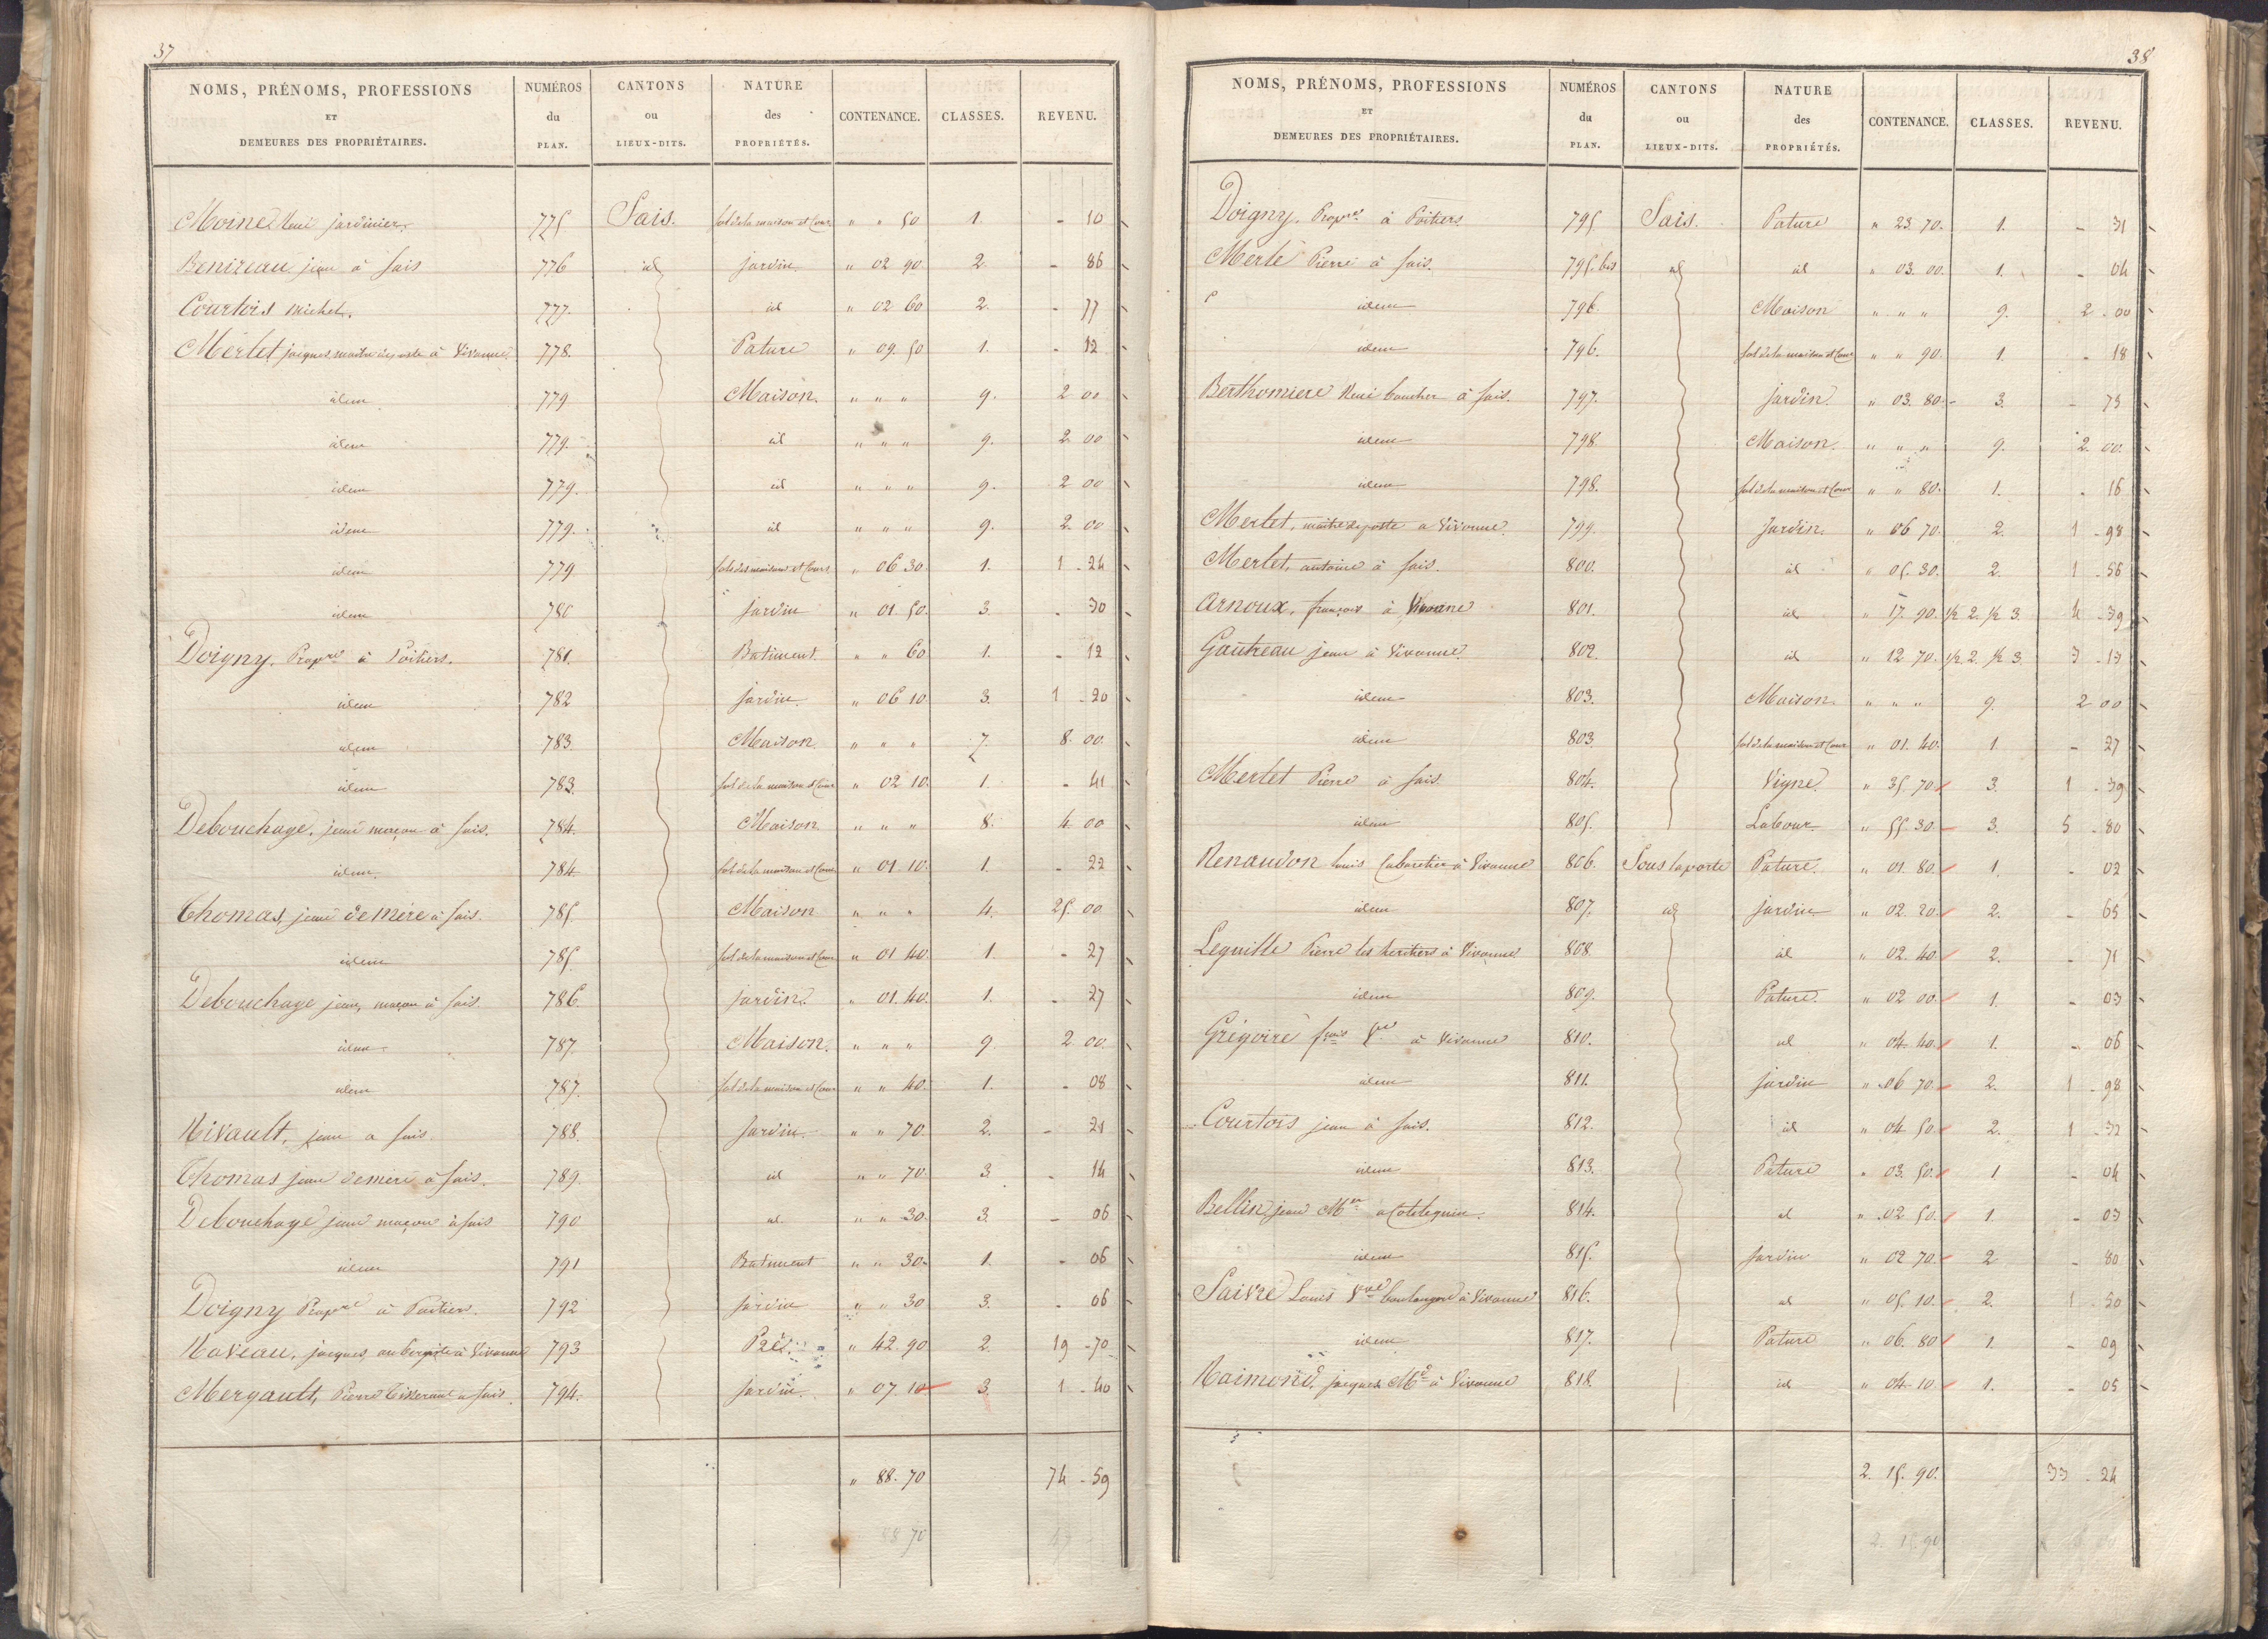 37
NOMS, PRÉNOMS, PROFESSIONS ET DEMEURES DES PROPRIÉTAIRES. NUMÉROS du PLAN. CANTONS ou LIEUX-DITS. NATURE des PROPRIÉTÉS. CONTENANCE. CLASSES. REVENU.
Moine jardinier 775 Sais. sol de la maison et Cour " " 50 1. - 10
Benizeau jean à Sais 776 id jardin " 02 90 2 - 86
Courtois Michel. 777. id " 02 60 2. - 77
Merlet jacques, maitre de poste à Vivonne 778. Pature " 09. 50 1. - 12
idem 779 Maison. " " " 9. 2 00
idem 779. id " " " 9. 2 00
idem 779. id " " " 9. 2 00
idem 779. id " " " 9. 2. 00
idem 779 sols des maisons et Cours " 06 30. 1. 1 - 24
idem 780 jardin " 01. 50. 3. - 30
Doigny. Propre à Poitiers. 781. Batiment. " " 60 1. - 12
idem 782 jardin. " 06 10 3. 1 - 20
idem 783. Maison. " " " 7. 8. 00.
idem 783. sol de la maison et Cour " 02 10. 1. - 41
Debouchage, jean maçon à Sais. 784. Maison " " " 8. 4 00
idem. 784. sol de la maison et Cour " 01 10. 1. - 22
Thomas jean demere à Sais. 785. Maison " " " 4. 25. 00
idem 785. sol de la maison et Cour " 01 40. 1. - 27
Debouchage jean, maçon à Sais. 786. jardin. " 01. 40. 1. - 27
idem. 787. Maison. " " " 9. 2 00.
idem 787. sol de la maison et Cour " " 40. 1. - 08
Rivault, jean a Sais. 788. Jardin. " " 70. 2. - 21
Thomas jean demere à Sais. 789. id " " 70. 3 - 14
Debouchage jean maçon à Sais 790 id. " " 30. 3. - 06
idem 791 Batiment " " 30. 1. - 06
Doigny Propre à Poitiers. 792 jardin " " 30 3. - 06
Naveau, jacques, aubergiste à Vivonne 793 Pré. " 42. 90 2. 19 - 70
Mergault, Pierre Tisserand a Sais. 794. jardin. " 07. 10 3. 1 - 40
" 88. 70 74 - 59
88 70
38
NOMS, PRÉNOMS, PROFESSIONS ET DEMEURES DES PROPRIÉTAIRES. NUMÉROS du PLAN. CANTONS ou LIEUX-DITS. NATURE des PROPRIÉTÉS. CONTENANCE. CLASSES. REVENU.
Doigny. Propre à Poitiers 795 Sais. Pature " 23. 70. 1. - 31
Merlé Pierre à Sais. 795. bis id id " 03. 00. 1. - 04
idem 796. Maison " " " 9. 2 - 00
idem 796. sol de la maison et Cour " " 90. 1. - 18
Berthomiere boucher à Sais. 797. jardin. " 03. 80. 3. - 75
idem 798. Maison. " " " 9. 2. 00.
idem 798. sol de la maison et Cour " " 80. 1. - 16
Merlet, maitre de poste a Vivonne. 799. Jardin. " 06 70. 2. 1 - 98
Merlet, antoine à Sais. 800. id " 05. 30. 2. 1 - 56
Arnoux, françois à Vivonne 801. id " 17. 90. 1/2 2. 1/2 3. 4 - 39
Gautreau jean à Vivonne. 802. id " 12 70. 1/2. 2. 1/2 3. 3 - 13
idem 803. Maison. " " " 9. 2 00
idem 803. sol de la maison et Cour " 01. 40. 1 - 27
Merlet Pierre à Sais. 804. Vigne. " 35. 70. 3. 1 - 39
idem 805. Labour. " 55. 30. 3. 5 - 80
Renaudon Louis Cabaretier à Vivonne 806. Sous la porte Pature. " 01. 80. 1. - 02
idem 807. id jardin " 02. 20. 2. - 65
Leguille Pierre les heritiers à Vivonne 808. id " 02. 40. 2. - 71
idem 809. Pature. " 02 00. 1. - 03
Grégoire à Vivonne 810. id " 04. 40. 1. - 06
idem 811. jardin " 06 70. 2. 1 - 98
Courtois jean à Sais. 812. id " 04. 50. 2. 1 - 32
idem 813. Pature " 03. 50. 1 - 04
Bellin jean 814. id " 02 50. 1. - 03
idem 815. jardin " 02 70. 2 - 80
Saivre Louis Vve boulanger à Vivonne 816. id " 05. 10. 2. 1 - 50
idem 817. Pature " 06. 80 1. - 09
Raimond, jacques Md à Vivonne 818. id " 04. 10 1. - 05
2. 15. 90. 33 - 24
2. 15. 90